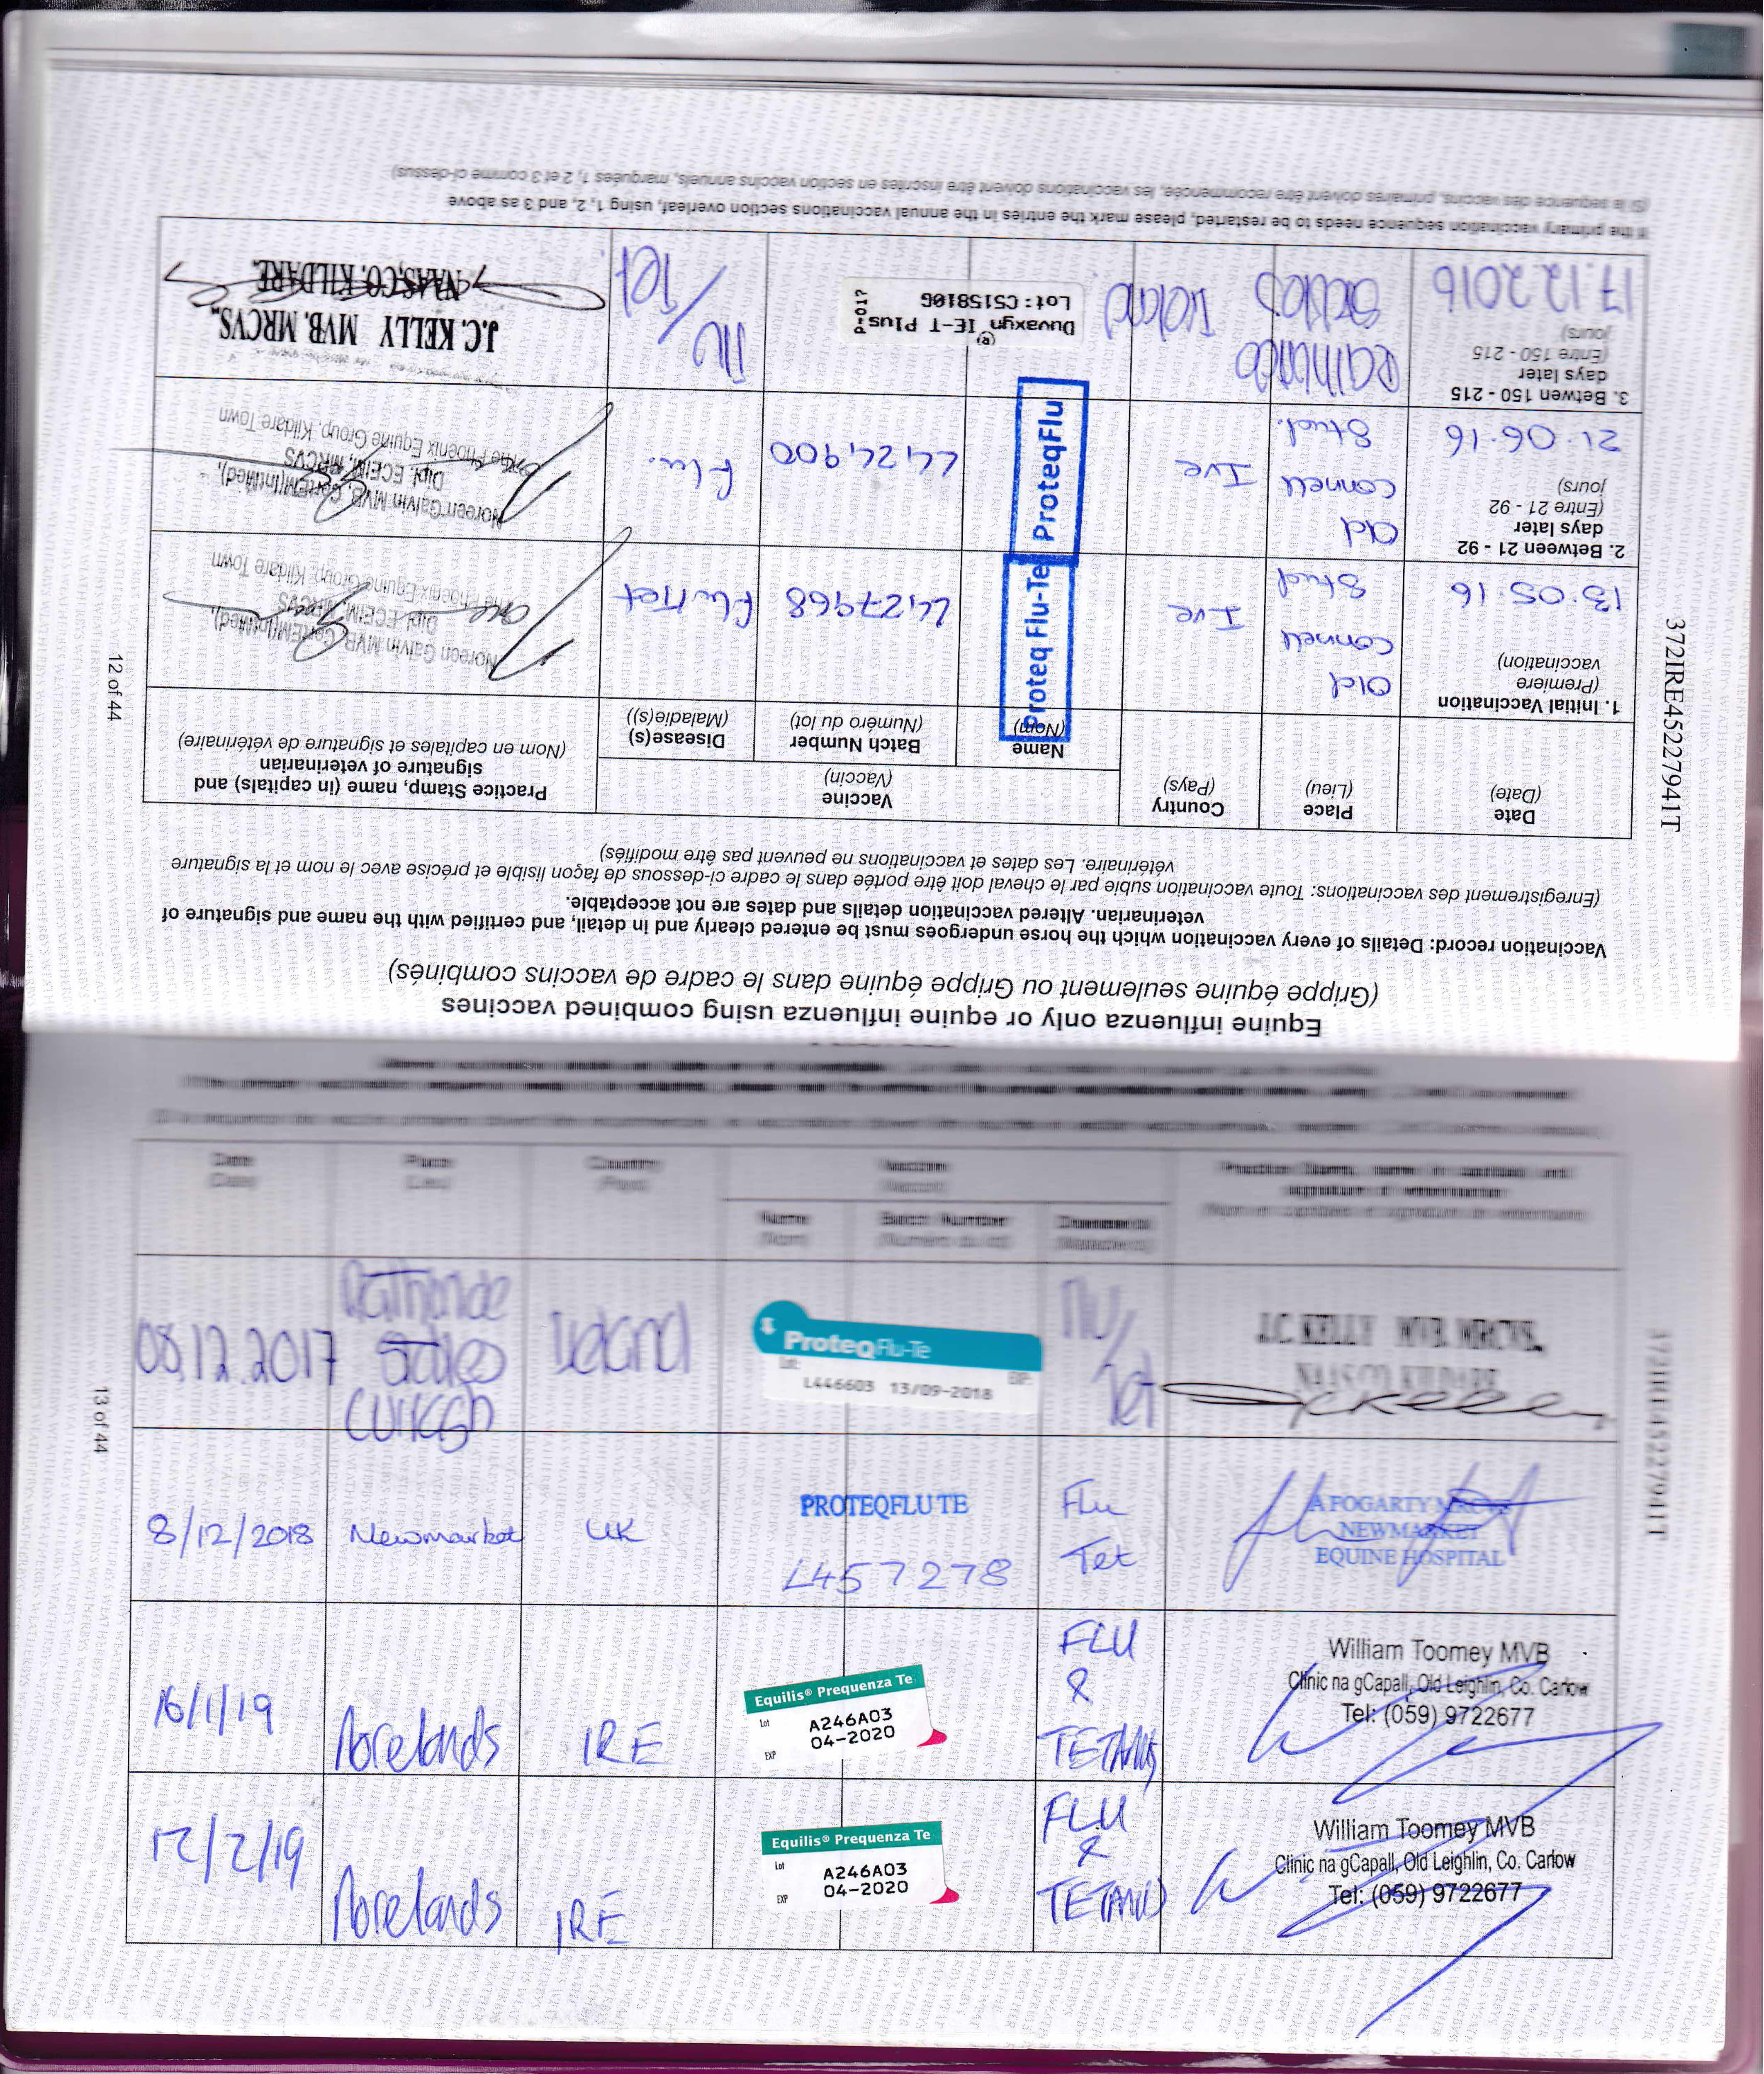 Equine influenza only or equine influenza using combined vaccines
(Grippe équine seulement ou Grippe équine dans le cadre de vaccins combinés)
Vaccination record: Details of every vaccination which the horse undergoes must be entered clearly and in detail, and certified with the name and signature of
veterinarian. Altered vaccination details and dates are not acceptable.
(Enregistrement des vaccinations: Toute vaccination subie par le cheval doit être portée dans le cadre ci-dessous de façon lisible et précise avec le nom et la signature
vétérinaire. Les dates et vaccinations ne peuvent pas être modifiés)
Date
(Date)
Place
(Lieu)
Country
(Pays)
Vaccine
(Vaccin)
Name
(Nom)
Batch Number
(Numéro du lot)
Disease(s)
(Maladie(s))
Practice Stamp, name (in capitals) and
signature of veterinarian
(Nom en capitales et signature de vétérinaire)
1. Initial Vaccination
(Première
vaccination)
13.05.16
Old
Connell
Stud
Ire
Proteq Flu-Te
L427968
Flu/Tet
Noreen Galvin MVB, CertEM(IntMed),
Dipl. ECEIM, MRCVS
The Phoenix Equine Group, Kildare Town
2. Between 21 - 92
days later
(Entre 21 - 92
jours)
21.06.16
Old
Connell
Stud.
Ire
ProteqFlu
L424900
Flu.
Noreen Galvin MVB, CertEM(IntMed),
Dipl. ECEIM, MRCVS
The Phoenix Equine Group, Kildare Town
3. Betwen 150 - 215
days later
(Entre 150 - 215
jours)
17.12.2016
Stables
Ireland
Duvaxyn(R) IE-T Plus
Lot: C515810G
P-017
Flu/
Tet
J.C. KELLY MVB. MRCVS.
NAAS, CO. KILDARE.
If the primary vaccination sequence needs to be restarted, please mark the entries in the annual vaccinations section overleaf, using 1, 2, and 3 as above
(Si la sequence des vaccins, primaires doivent être recommencée, les vaccinations doivent être inscrites en section vaccins annuels, marquées 1, 2 et 3 comme ci-dessus)
372IRE45227941T
12 of 44
Date
(Date)
Place
(Lieu)
Country
(Pays)
Vaccine
(Vaccin)
Name
(Nom)
Batch Number
(Numéro du lot)
08.12.2017
Stables
Ireland
ProteqFlu-Te
Lot: EXP:
L446603 13/09-2018
Flu/
Tet
J.C. KELLY MVB. MRCVS.
NAAS CO. KILDARE
8/12/2018
Newmarket
UK
PROTEQFLU TE
L457278
Flu
Tet
A FOGARTY MRCVS
NEWMARKET
EQUINE HOSPITAL
16/1/19
Norelands
IRE
Equilis® Prequenza Te
Lot A246A03
EXP 04-2020
FLU
&
TETANUS
William Toomey MVB
Clinic na gCapall, Old Leighlin, Co. Carlow
Tel: (059) 9722677
12/2/19
Norelands
IRE
Equilis® Prequenza Te
Lot A246A03
EXP 04-2020
FLU
&
TETANUS
William Toomey MVB
Clinic na gCapall, Old Leighlin, Co. Carlow
Tel: (059) 9722677
13 of 44
372IRE45227941T